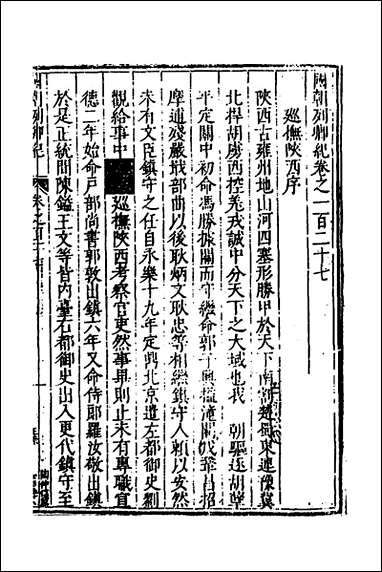 國朝列卿紀卷之一百二十七
巡撫陝西序
陝西古雍州地山河四塞形勝甲於天下南
北捍胡虜西控羌戎誠中分天下之大域也我 朝驅逐胡
平定關中初命馮勝據關而守繼命郭
摩逋殘嚴戢部曲以後耿炳文耿忠等相繼鎮守人賴以安然
未有文臣鎮守之任自永樂十九年定鼎北京遣左都御史劉
觀給事中 巡撫陝西考察官吏然事畢則止未有專職宣
德二年始命戶部尚書郭敦出鎮六年又命侍郎羅汝敬出鎮
於是正統間陳鎰王文等皆内臺右都御史出入更代鎮守至
國朝列卿紀